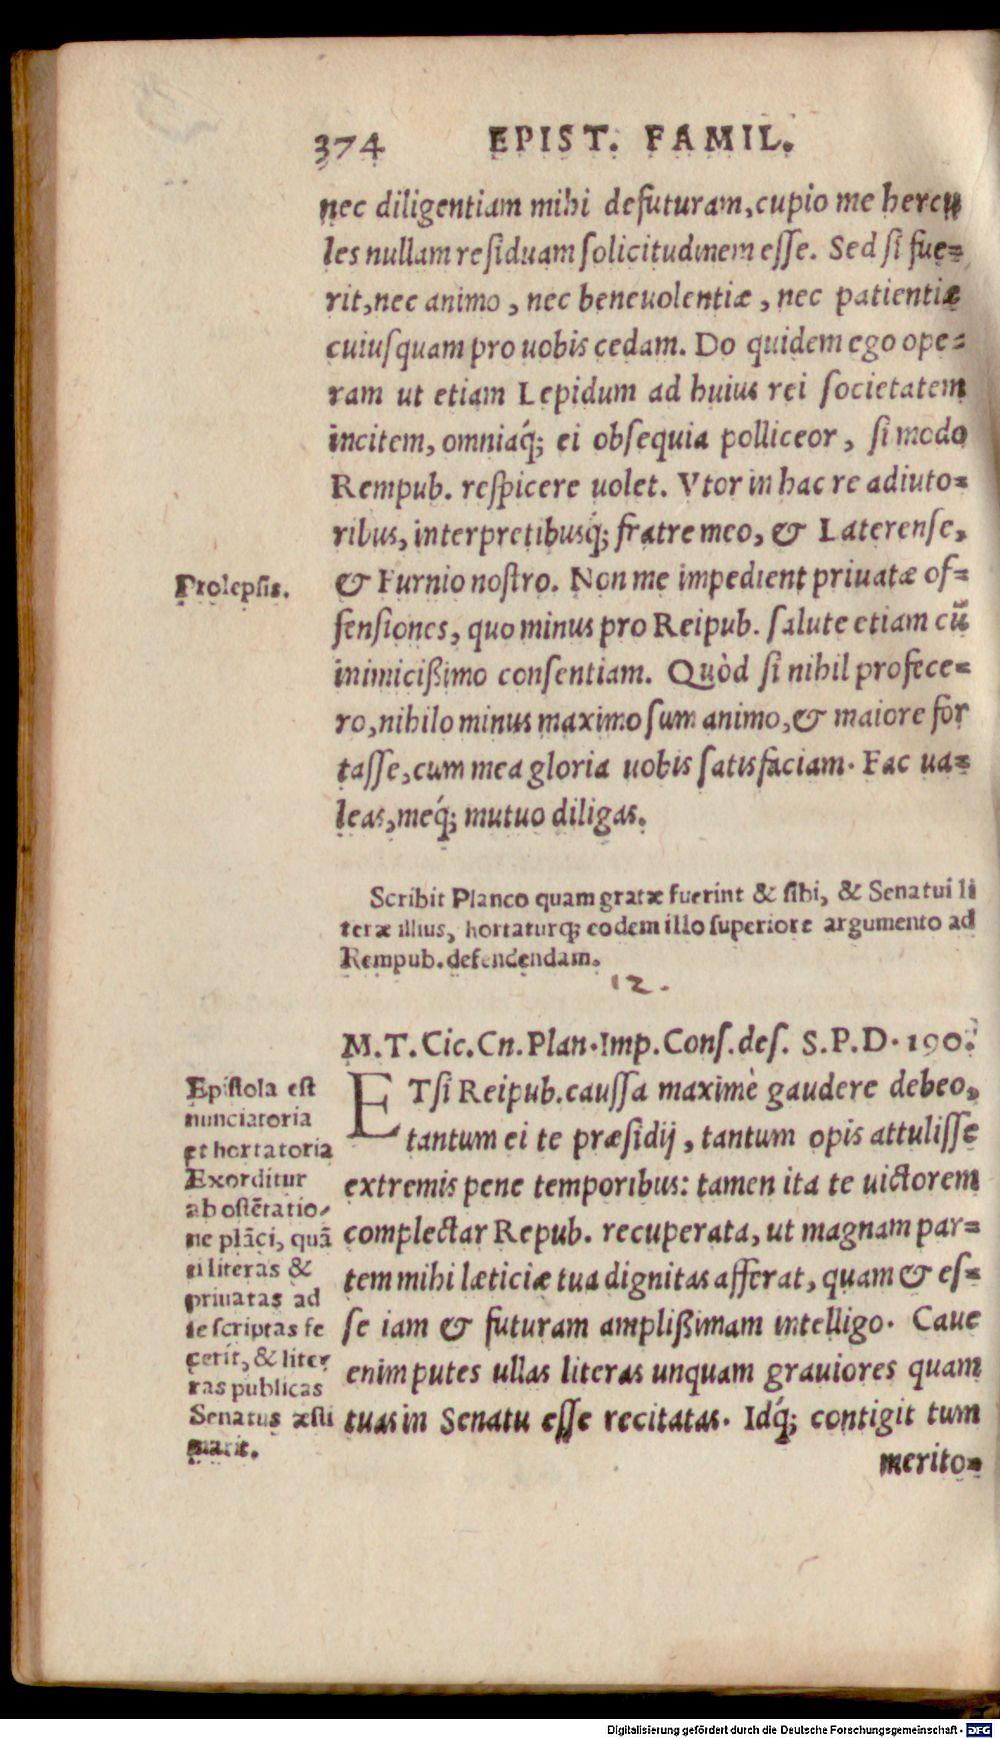 374 EPIST. FAMIL.
nec diligentiam mihi defuturam, cupio me hercu
les nullam residuam solicitudinem esse. Sed si fue=
rit, nec animo, nec beneuolentiæ, nec patientiæ
cuiusquam pro uobis cedam. Do quidem ego ope=
ram ut etiam Lepidum ad huius rei societatem
incitem, omniaq́; ei obsequia polliceor, si modo
Rempub. respicere uolet. Vtor in hac re adiuto=
ribus, interpretibusq́; fratre meo, & Laterense,
Prolepsis.
& Furnio nostro. Non me impedient priuatæ of=
fensiones, quo minus pro Reipub. salute etiam cū
inimicißimo consentiam. Quòd si nihil profece=
ro, nihilo minus maximo sum animo, & maiore for
tasse, cum mea gloria uobis satisfaciam. Fac ua=
leas, meq́; mutuo diligas.
Scribit Planco quam gratæ fuerint & sibi, & Senatui li
teræ illius, hortaturq; eodem illo superiore argumento ad
Rempub. defendendam.
12.
M.T.Cic.Cn.Plan.Imp.Cons.des. S.P.D. 190.
ETsi Reipub. caussa maximè gaudere debeo,
tantum ei te præsidij, tantum opis attulisse
extremis pene temporibus: tamen ita te uictorem
complectar Repub. recuperata, ut magnam par=
tem mihi læticiæ tua dignitas afferat, quam & es=
se iam & futuram amplißimam intelligo. Caue
enim putes ullas literas unquam grauiores quam
tuas in Senatu esse recitatas. Idq́; contigit tum
merito=
Epistola est
nunciatoria
et hortatoria
Exorditur
ab ostētatio-
ne plāci, quā
ti literas &
priuatas ad
se scriptas fe
cerit, & lite
ras publicas
Senatus æsti
marit.
Digitalisierung gefördert durch die Deutsche Forschungsgemeinschaft - DFG